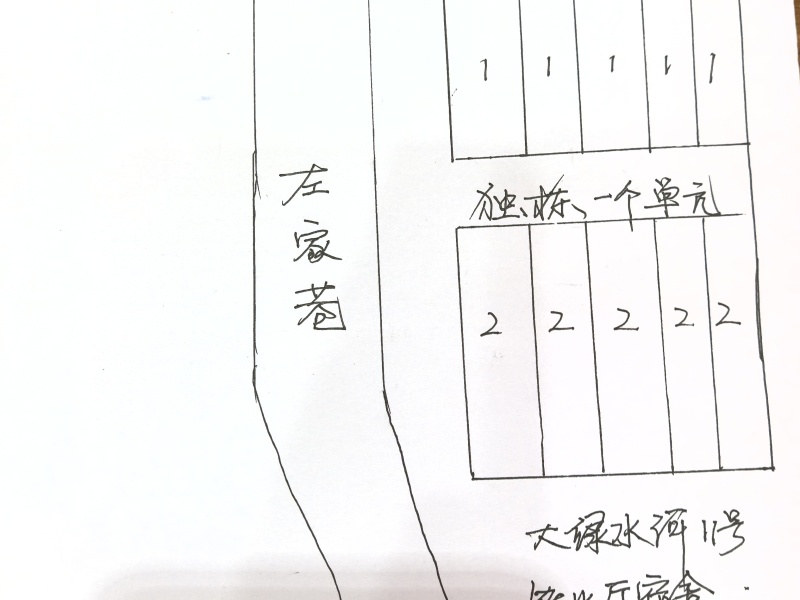 1 1 1 1 1
左
家
巷
独栋、一个单元
2 2 2 2 2
大绿水河11号
厅宿舍